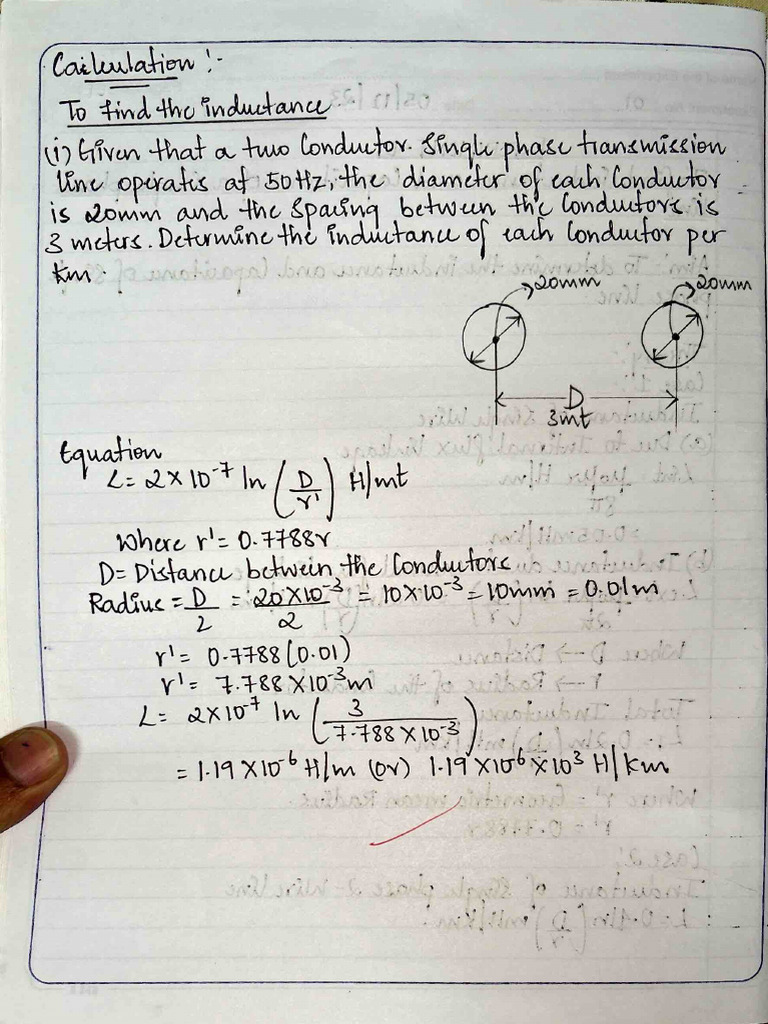 Cailculation :-
To find the inductance
(i) Given that a two Conductor. Single phase transmission
line operates at 50Hz, the diameter of each Conductor
is 20mm and the Spacing between the Conductors is
3 meters. Determine the inductance of each Conductor per
km.
20mm 20mm
D
3mt
Equation
L = 2×10⁻⁷ ln (D/r') H/mt
Where r' = 0.7788r
D = Distance between the Conductors
Radius = D/2 = 20×10⁻³/2 = 10×10⁻³ = 10mm = 0.01m
r' = 0.7788(0.01)
r' = 7.788×10⁻³m
L = 2×10⁻⁷ ln (3/7.788×10⁻³)
= 1.19×10⁻⁶ H/m (or) 1.19×10⁶×10³ H/km